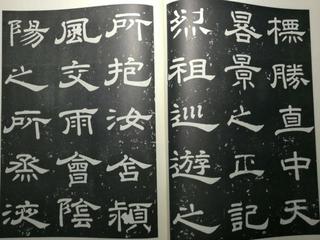 標勝直中天
晷景之正記
烈祖巡遊之
所抱汝含潁
風交雨會陰
陽之所烝液